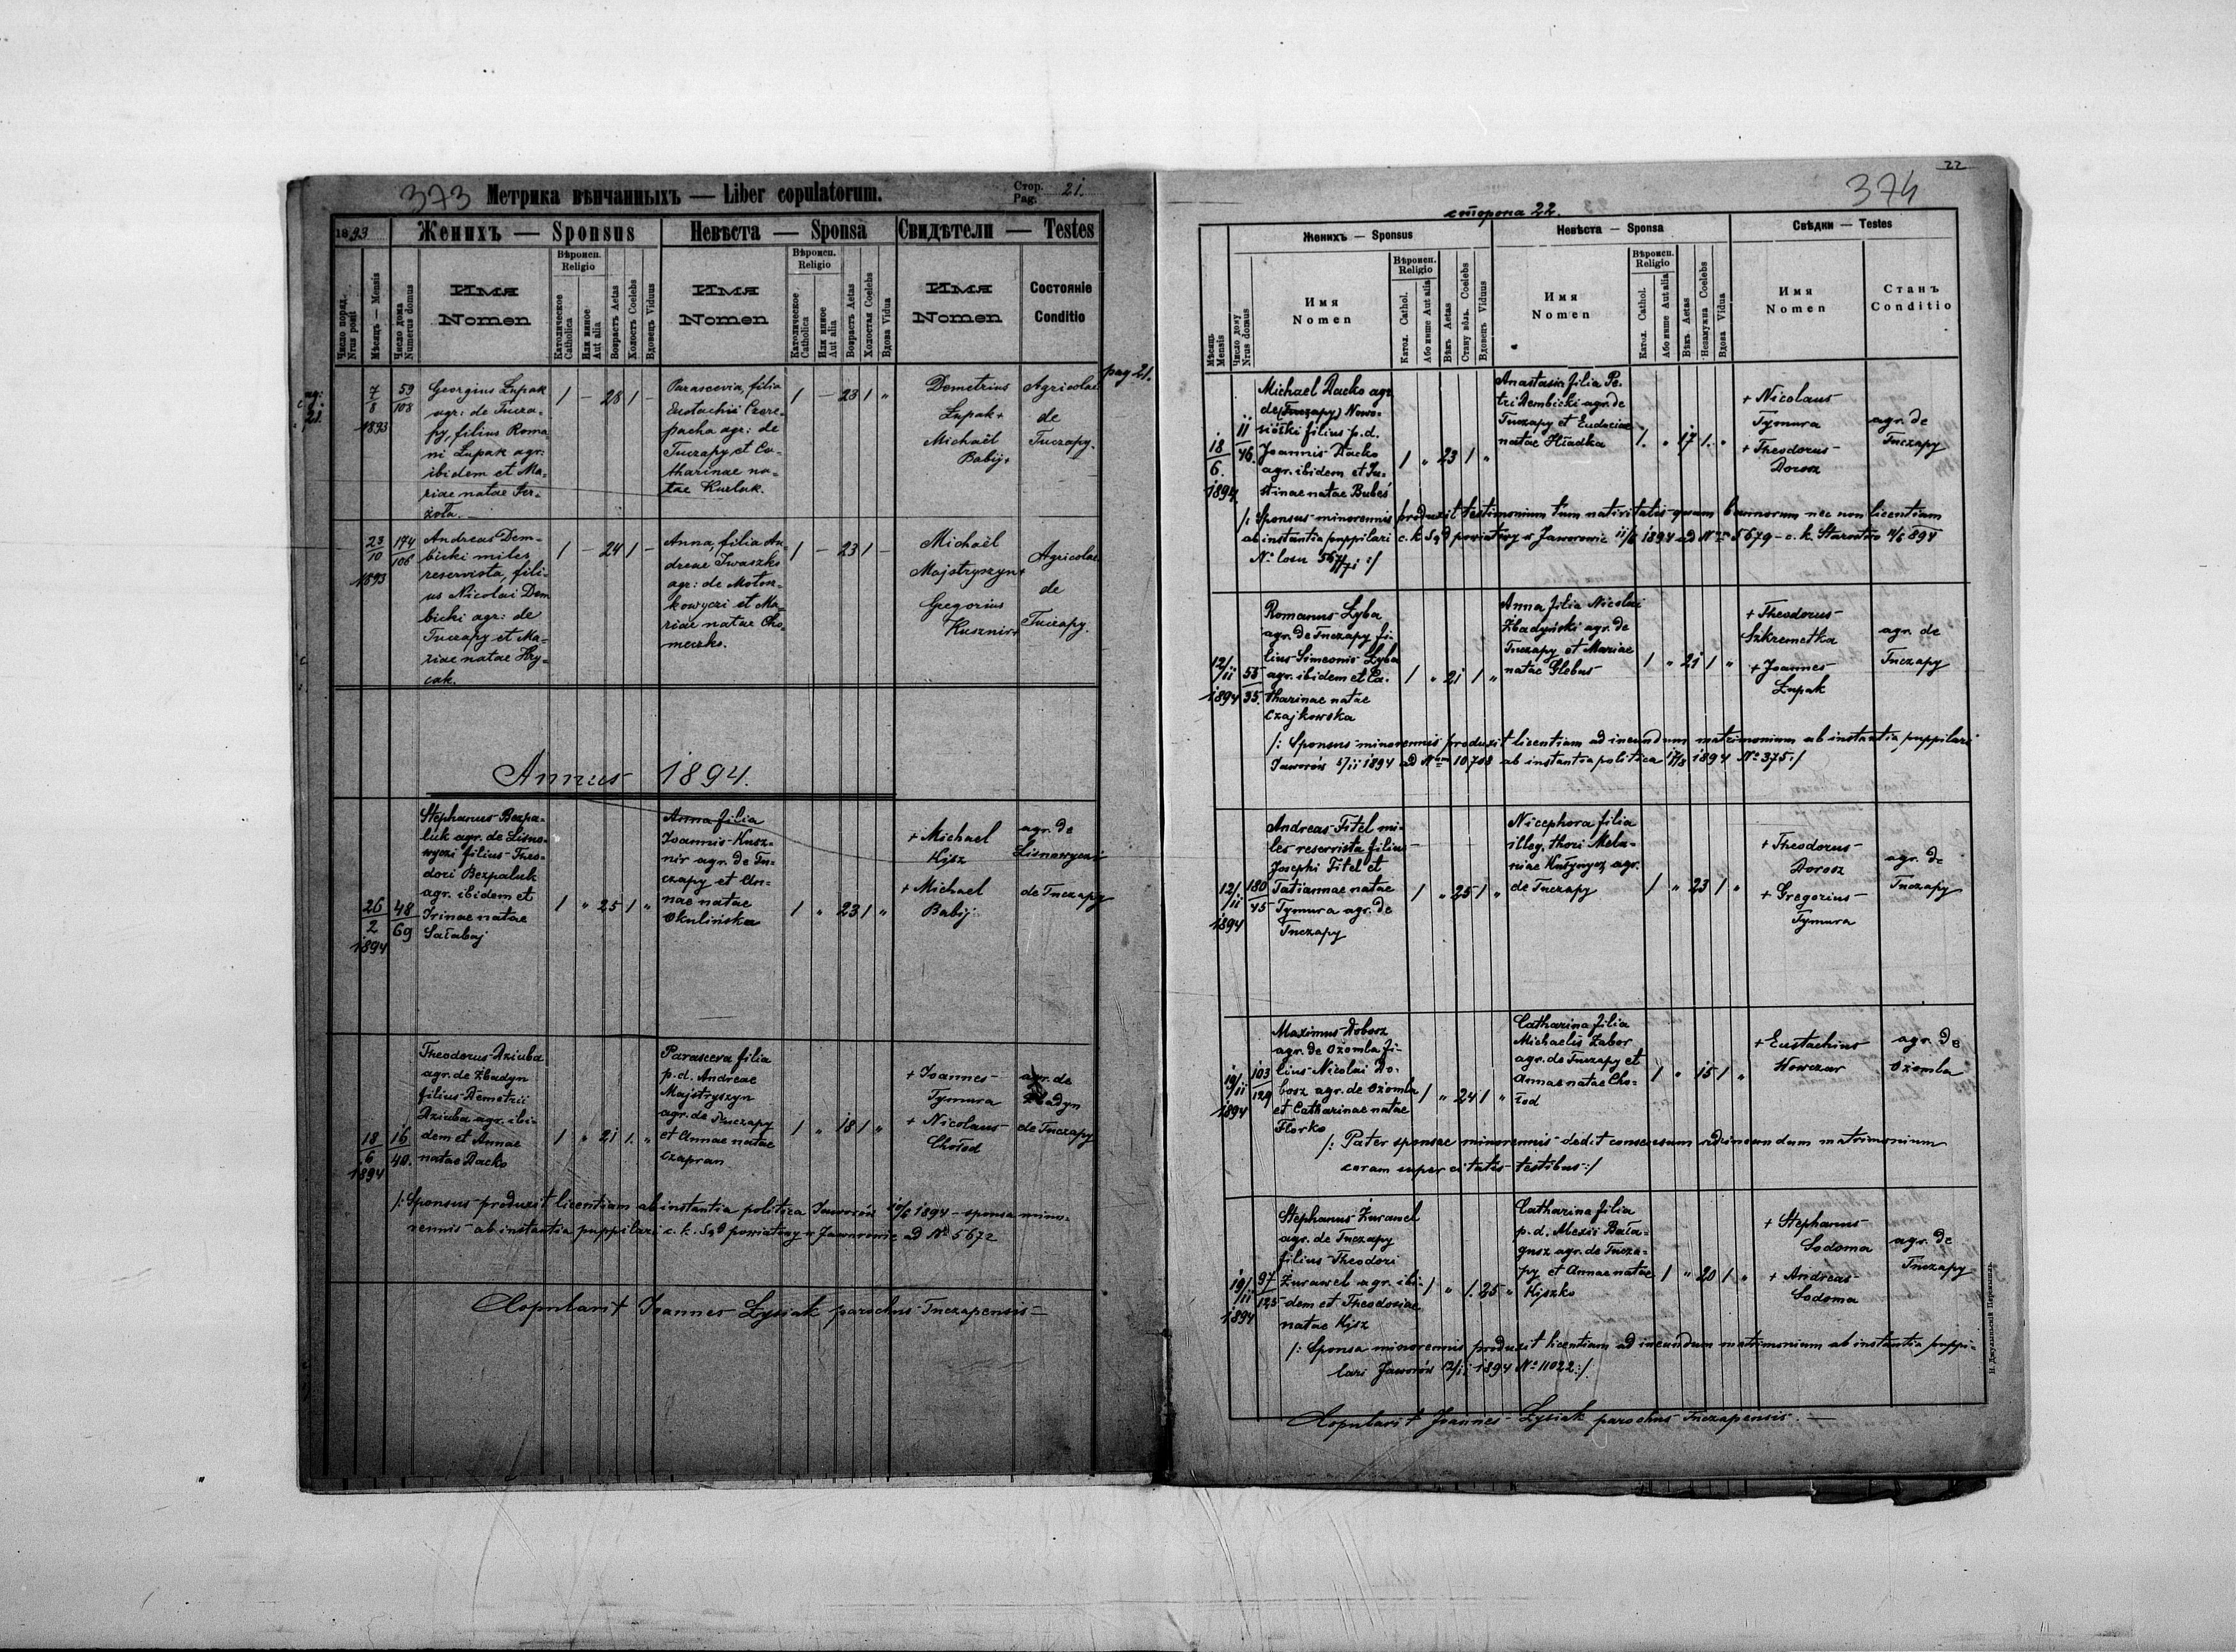 373 Метрика вѣнчанныхъ — Liber copulatorum.
Стор. Pag. 21.
1893
Женихъ — Sponsus
Невѣста — Sponsa
Свидѣтели — Testes
Число поряд. Nrus positi
Мѣсяцъ — Mensis
Число дома Numerus domus
Имя Nomen
Вѣроисп. Religio
Католическое Catholica
Или иное Aut alia
Возрастъ Aetas
Холостъ Coelebs
Вдовець Viduus
Имя Nomen
Вѣроисп. Religio
Католическое Catholica
Или иное Aut alia
Возрастъ Aetas
Холостая Coelebs
Вдова Vidua
Имя Nomen
Состояніе Conditio
pag. 21.
7/8 1893
59/108
Georgius Łupak
agr: de Tucza-
py, filius Roma-
ni Łupak agr:
ibidem et Ma-
riae natae
1 — 28 1 —
Parascevia, filia
Eustachii Czere-
pacha agr: de
Tuczapy et Ca-
tharinae na-
tae Kurluk.
1 — 23 1 "
Demetrius
Łupak+
Michaël
Babij+
Agricolae
de
Tuczapy.
23/10 1893
174/106
Andreas Dem-
bicki miles
reservista, fili-
us Nicolai Dem
bicki agr: de
Tuczapy et Ma-
riae natae Hry-
cak.
1 — 24 1 —
Anna, filia An-
dreae Iwaszko
agr: de Mołosz-
kowyczi et Ma-
riae natae Cho-
meczko.
1 — 23 1 —
Michaël
Majstryszyn+
Gregorius
Kusznir+
Agricolae
de
Tuczapy.
Annus 1894.
26/2 1894
48/69
Stephanus Bezpa-
luk agr. de Lisno-
wyczi filius Theo-
dori Bezpaluk
agr. ibidem et
Irinae natae
Sałabaj
1 " 25 1 "
Anna filia
Joannis Kusz-
nir agr. de Tu-
czapy et An-
nae natae
Okulińska
1 " 23 1 "
+ Michael
Kjsz
+ Michael
Babij
agr. de
Lisnowyczi
de Tuczapy
18/6 1894
16/40.
Theodorus Dziuba
agr. de Zbadyn
filius Demetrii
Dziuba agr. ibi-
dem et Annae
natae Dacko
1 " 21 1. "
Parasceva filia
p.d. Andreae
Majstryszyn
agr. de Tuczapy
et Annae natae
Czapran
1 " 18 1 "
+ Joannes
Tymura
+ Nicolaus
Chołod
agr. de
Zbadyn
de Tuczapy
/: Sponsus produxit licentiam ab instantia politica Jaworów 10/6 1894 — sponsa mino-
rennis ab instantia puppilari c. k. Sąd powiatowy w Jaworowie ad No 5672
Copulavit Joannes Łysiak parochus Tuczapensis
22
374
сторона 22.
Женихъ — Sponsus
Невѣста — Sponsa
Свѣдки — Testes
Мѣсяць Mensis
Число дому Nrus domus
Имя Nomen
Вѣроисп. Religio
Катол. Cathol.
Або инше Aut alia
Вѣкъ Aetas
Стану вôль. Coelebs
Вдовець Viduus
Имя Nomen
Вѣроисп. Religio
Катол. Cathol.
Або инше Aut alia
Вѣкъ Aetas
Незамужна Coelebs
Вдова Vidua
Имя Nomen
Станъ Conditio
18/6. 1894
11/46.
Michael Dacko agr
de (Tuczapy) Nowo-
siółki filius p.d.
Joannis Dacko
agr. ibidem et Ju-
stinae natae Bubeś
1 " 23 1 "
Anastasia filia Pe-
tri Dembicki agr. de
Tuczapy et Eudociae
natae Hładka
1. " 17 1. "
+ Nicolaus
Tymura
+ Theodorus
Dorosz
agr. de
Tuczapy
/: Sponsus minorennis produxit testimonium tum nativitatis quam bannorum nec non licentiam
ab instantia puppilari c. k. Sąd powiatowy w Jaworowie 11/6 1894 ad Nrum 5679 — c. k. Starostwo 11/6 894
No losu :/
12/11 1894
53/35.
Romanus Łyba
agr. de Tuczapy fi-
lius Simeonis Łyba
agr. ibidem et Ca-
tharinae natae
Czajkowska
1 " 21 1 "
Anna filia Nicolai
Zbadyński agr. de
Tuczapy et Mariae
natae Glebus
1 " 21 1 "
+ Theodorus
Szkremetka
+ Joannes
Łupak
agr. de
Tuczapy
/: Sponsus minorennis produxit licentiam ad ineundum matrimonium ab instantia puppilari
Jaworów 5/11 1894 ad Num 10708 ab instantia politica 17/8 1894 No 375:/
12/11 1894
180/45
Andreas Fitel mi-
les reservista filius
Josephi Fitel et
Tatiannae natae
Tymura agr. de
Tuczapy
1 " 25 1 "
Nicephora filia
illeg. thori Mela-
niae Kułynycz agr.
de Tuczapy
1 " 23 1 "
+ Theodorus
Dorosz
+ Gregorius
Tymura
agr. de
Tuczapy
19/11 1894
103/129
Maximus Dobosz
agr. de Ożomla fi-
lius Nicolai Do-
bosz agr. de Ożomla
et Catharinae natae
Florko
1 " 24 1 "
Catharina filia
Michaelis Zabor
agr. de Tuczapy et
Annae natae Cho-
łod
1 " 15 1 "
+ Eustachius
Kowczar
agr. de
Ożomla
/: Pater sponsae minorennis dedit consensum ad ineundum matrimonium
coram super citatis testibus:/
19/11 1894
97/125
Stephanus Żurawel
agr. de Tuczapy
filius Theodori
Żurawel agr. ibi-
dem et Theodosiae
natae Kjsz
1 " 1. 25 "
Catharina filia
p.d. Alexii Bała-
gusz agr. de Tucza-
py et Annae natae
Kjszko
1 " 20 1 "
+ Stephanus
Sodoma
+ Andreas
Sodoma
agr. de
Tuczapy
/: Sponsa minorennis produxit licentiam ad ineundum matrimonium ab instantia puppi-
lari Jaworów 12/11 1894 No 11022:/
Copulavit Joannes Łysiak parochus Tuczapensis.
Н. Джулыньскій Перемышль.